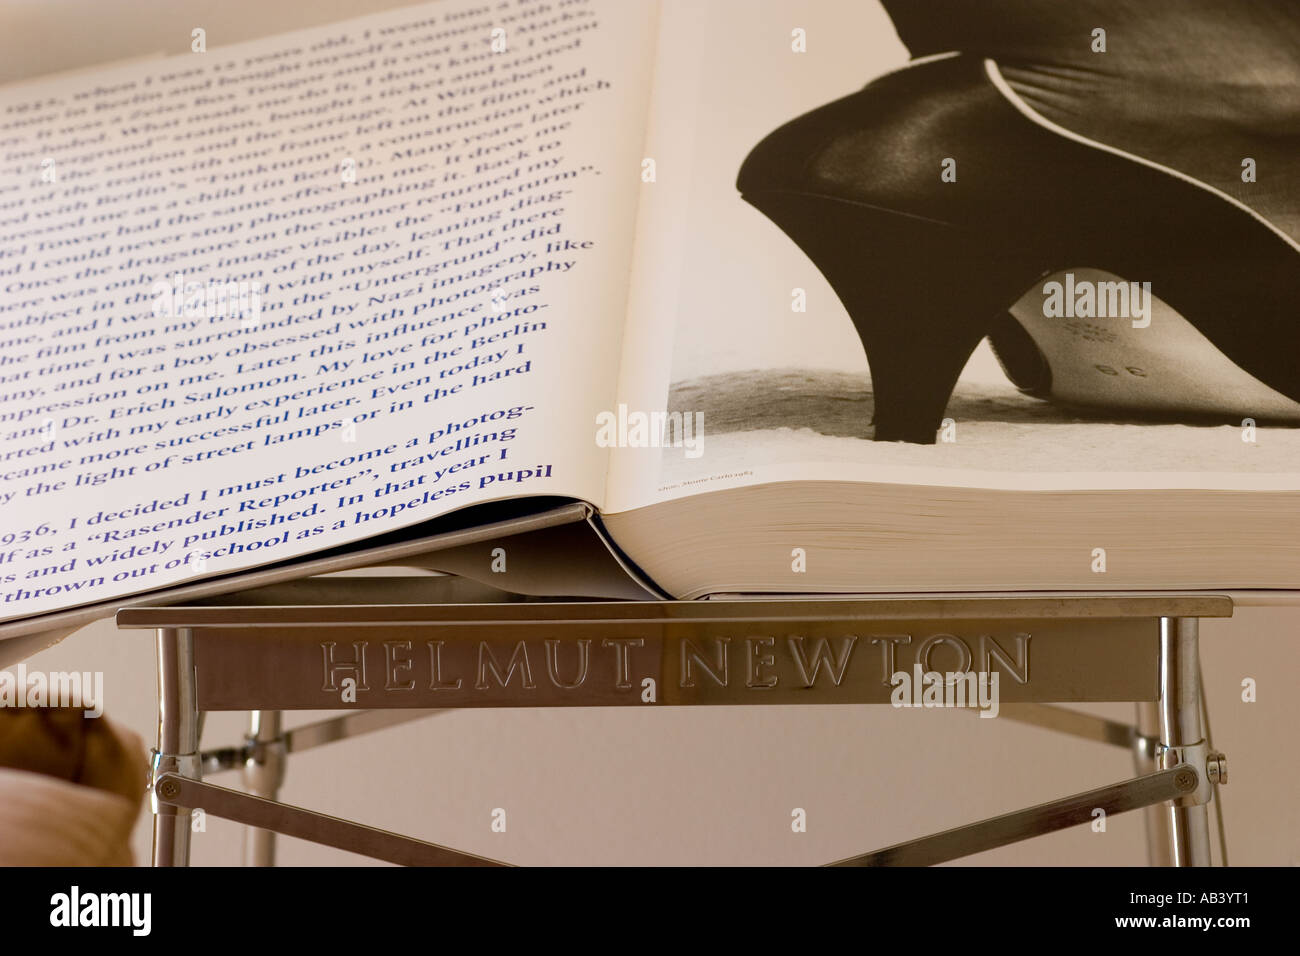 1932, when I was 12 years old, I went into a
store in Berlin and bought myself a camera with my
It was a Zeiss Box Tengor and it cost 2.50 Marks,
included. What made me do it, I don't know. I went
"Untergrund" station, bought a ticket and started
in the station and the carriage. At Witzleben
out of the train with one frame left on the film, and
ed with Berlin's "Funkturm", a construction which
pressed me as a child (in Berlin). Many years later
fel Tower had the same effect on me. It drew me
nd I could never stop photographing it. Back to
Once the drugstore on the corner returned my
here was only one image visible: the "Funkturm".
subject in the fashion of the day, leaning diag-
me, and I was pleased with myself. That there
he film from my trip in the "Untergrund" did
hat time I was surrounded by Nazi imagery, like
any, and for a boy obsessed with photography
mpression on me. Later this influence was
and Dr. Erich Salomon. My love for photo-
arted with my early experience in the Berlin
came more successful later. Even today I
by the light of street lamps or in the hard
936, I decided I must become a photog-
lf as a "Rasender Reporter", travelling
s and widely published. In that year I
thrown out of school as a hopeless pupil
Shoe, Monte Carlo 1983
36
HELMUT NEWTON
a
alamy
alamy
Image ID: AB3YT1
www.alamy.com